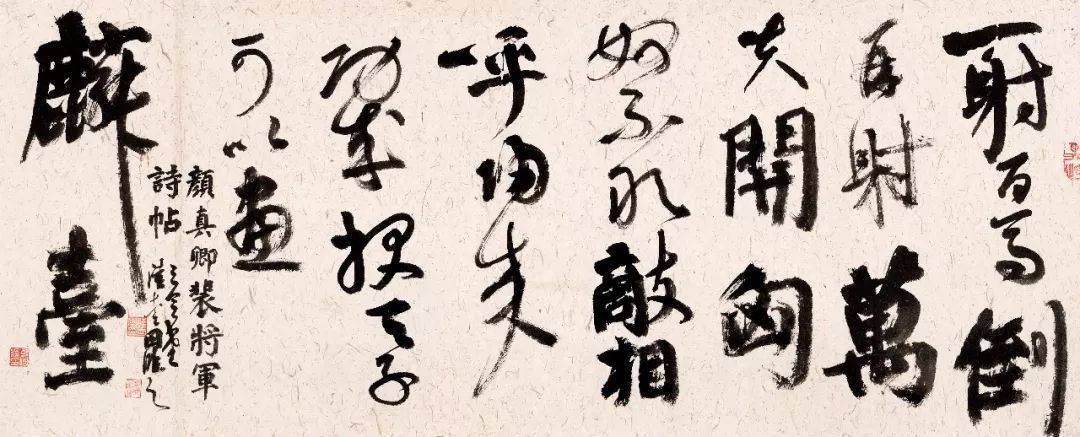 一射百馬倒
再射萬
夫開匈
奴不敢敵相
呼歸來
功成報天子
可以畫
麟臺
顏真卿裴將軍
詩帖